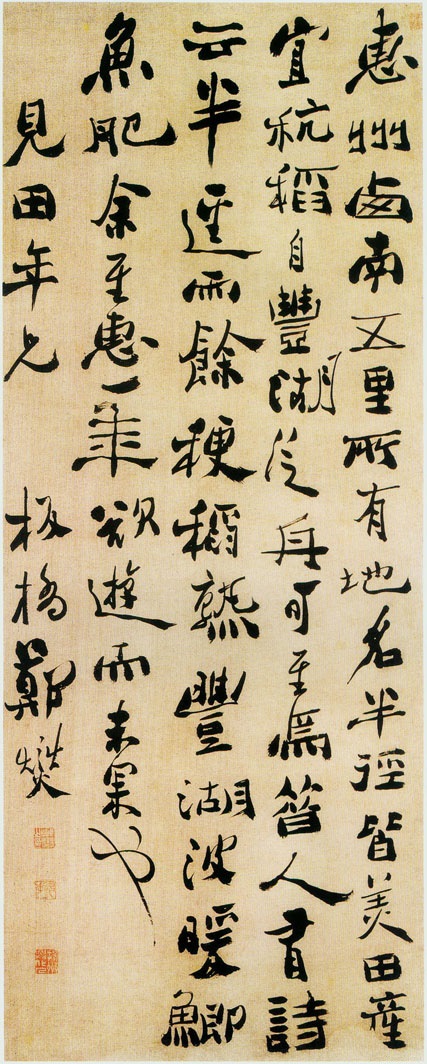 惠州西南五里所有地名半徑皆美田產
宜秔稻自豐湖泛舟可至焉昔人有詩
云半逕雨餘稉稻熟豐湖波暖鯽
魚肥余至惠一年欲遊而未果也
見田年兄 板橋鄭燮